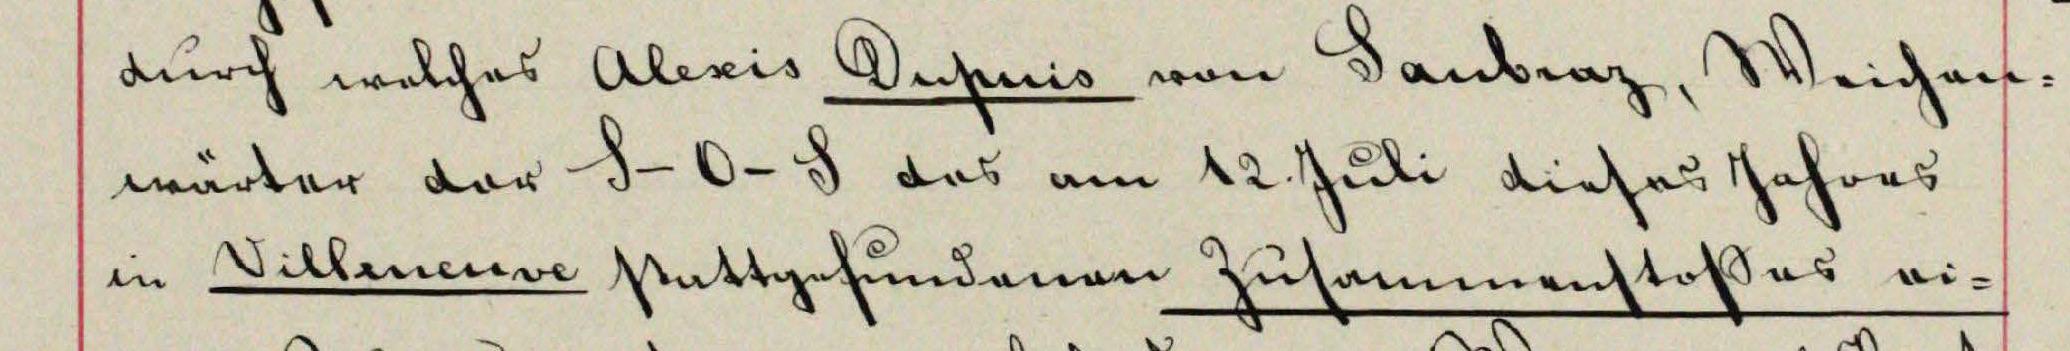 durch welches Alexis Dupuis von Saubraz, Weichen-
wärter der S-O-S des am 12. Juli dieses Jahres
in Villeneuve stattgefundenen Zusammenstoßes ei-